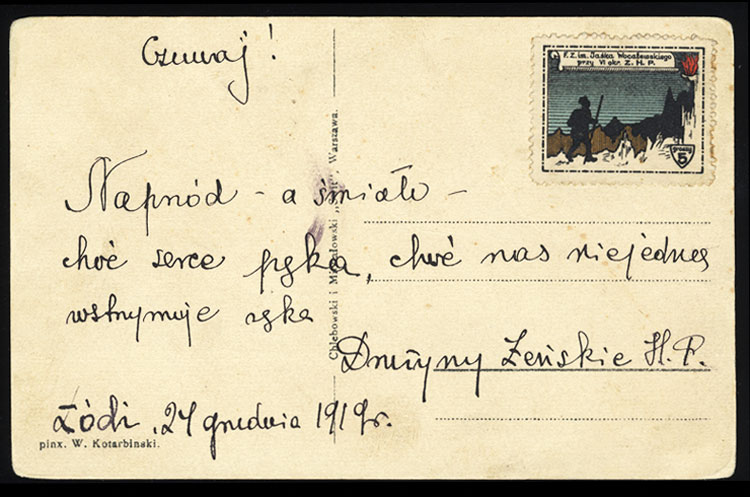 Czuwaj!
F. Z. im. Jaśka Wocalewskiego
przy VI okr. Z. H. P.
groszy
5
Napszód – a śmiało –
choć serce pęka, choć nas niejedna
wstrzymuje ręka
Drużyny Żeńskie H. P.
Łódź, 24 grudnia 1919r.
pinx. W. Kotarbinski.
Chlebowski i Michałowski „Świt”, Warszawa.